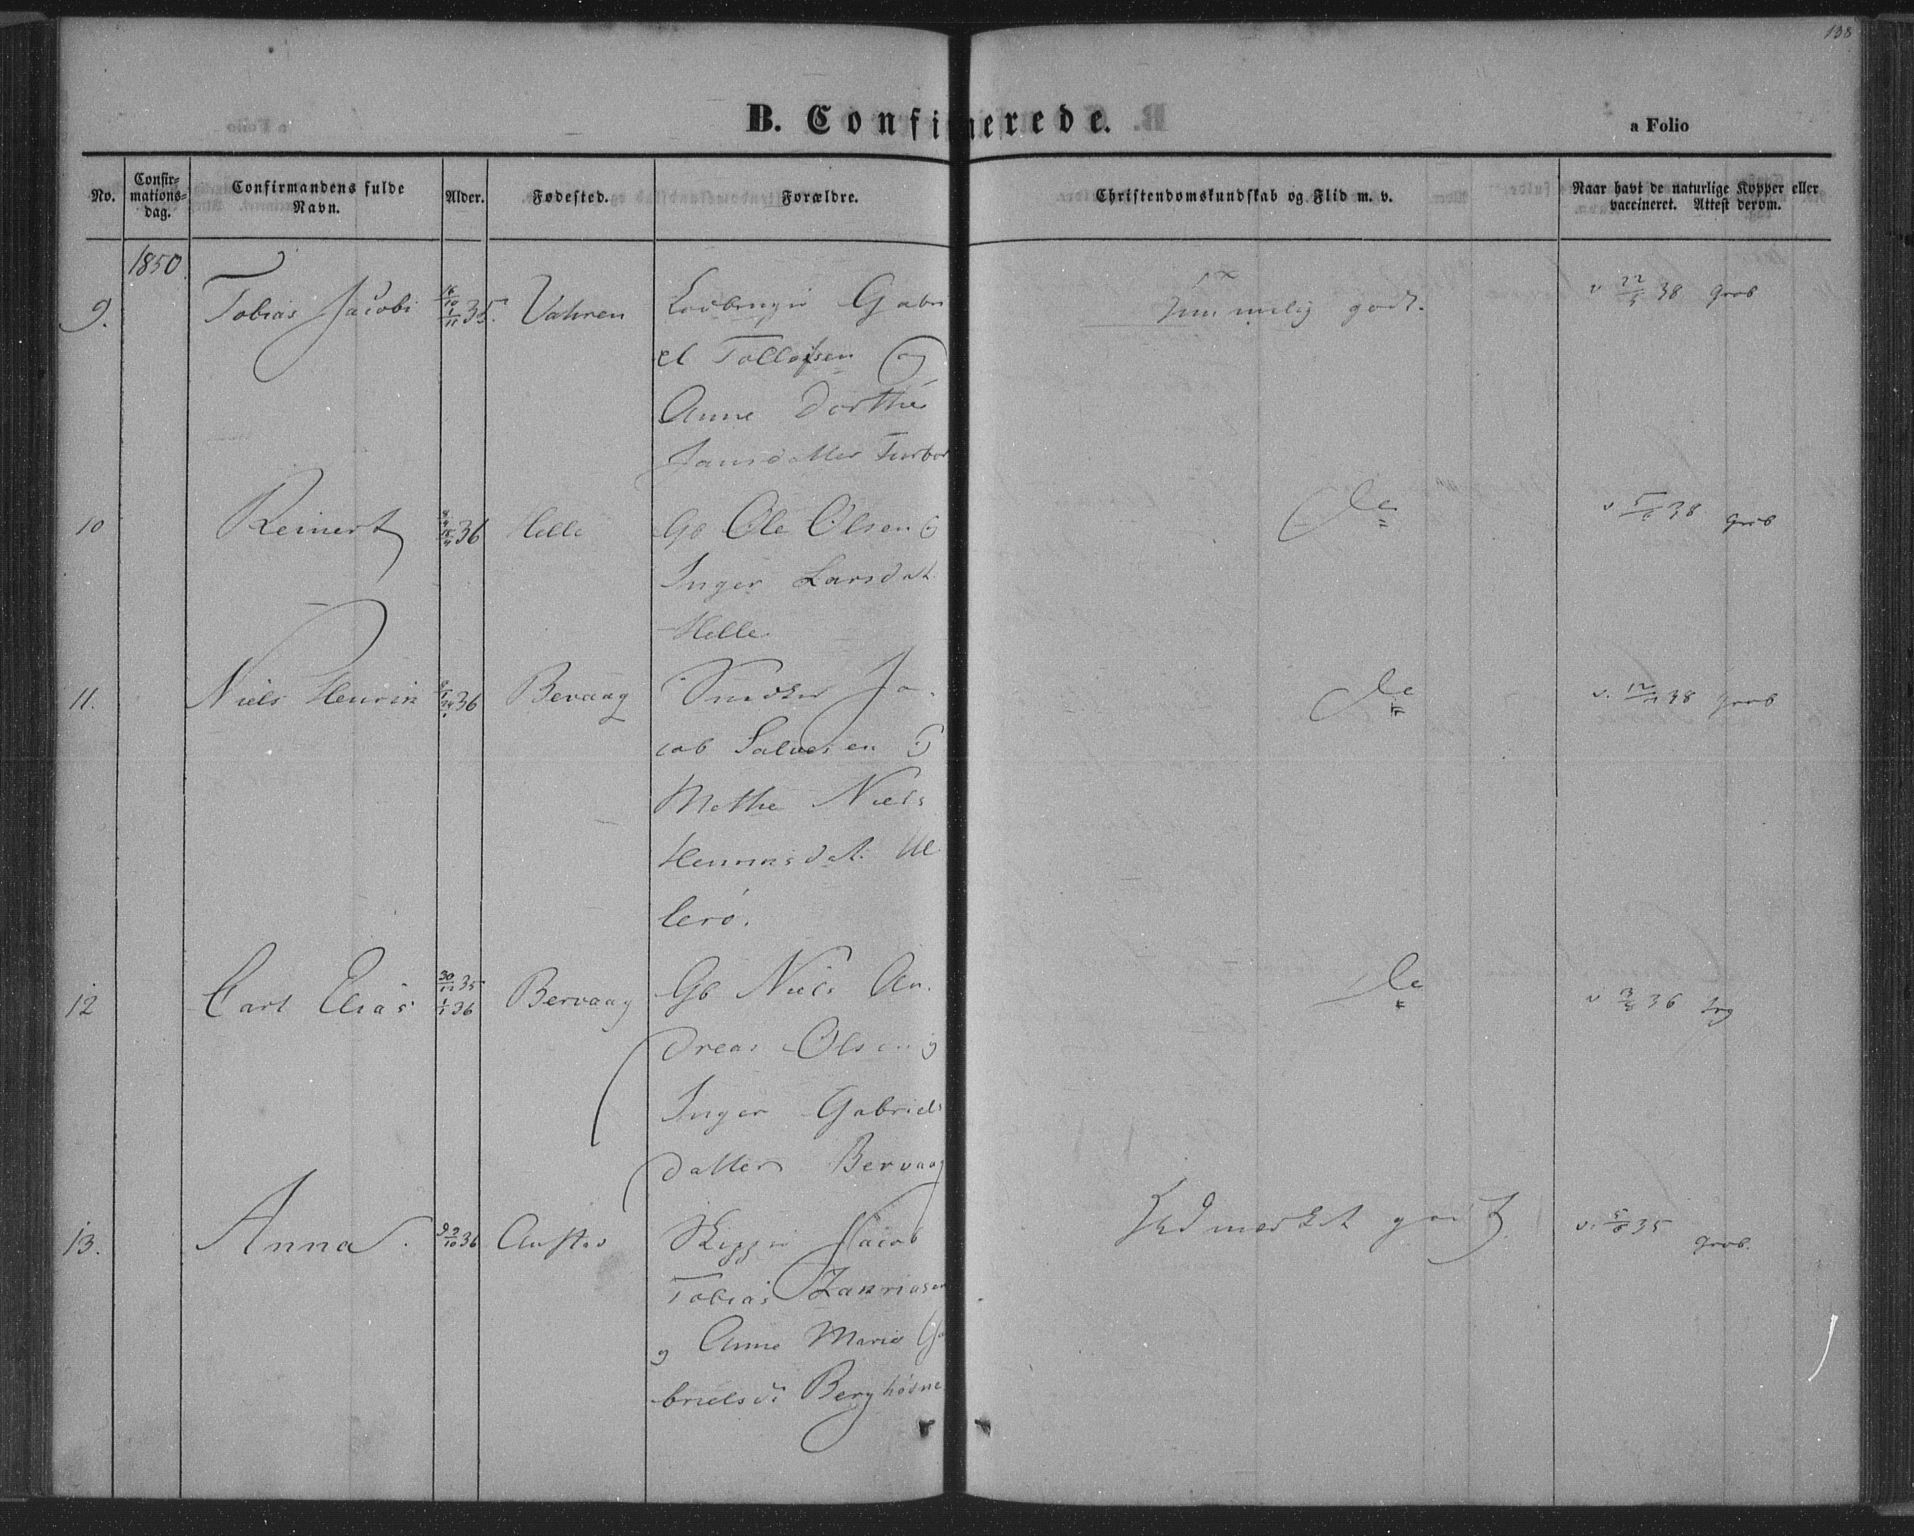 138
B. Confirmerede.
a Folio
No.
Confir-
mations-
dag.
Confirmandens fulde
Navn.
Alder.
Fødested.
Forældre.
Christendomskundskab og Flid m. v.
Naar havt de naturlige Kopper eller
vaccineret. Attest derom.
1850
9. Tobias Jacobi 16/10 1/11 35. Vahren Gabri
el Tollofsen og
Anne Dorthe
Jansdatter
godt.
v 22/5 38 Grob
10 Reinert 36 Helle Gb Ole Olsen og
Inger Larsdat
Helle
do
v 5/6 38 Grob
11. Niels Henrik 36 Bervaag Snedker Ja-
cob Salvesen og
Methe Niels
Henriksdat. Ul
lerø.
do
v. 38 Grob
12 Carl Elias 30/12 35 1/1 36 Bervaag Gb Niels An-
dreas Olsen og
Inger Gabriels
datter Bervaag
do
v 36
13. Anna. 36 Skipper Jacob
Tobias Zakriasen
og Anne Marie Ga
brielsd:
Udmærket godt
v. 5/8 35 Grob.